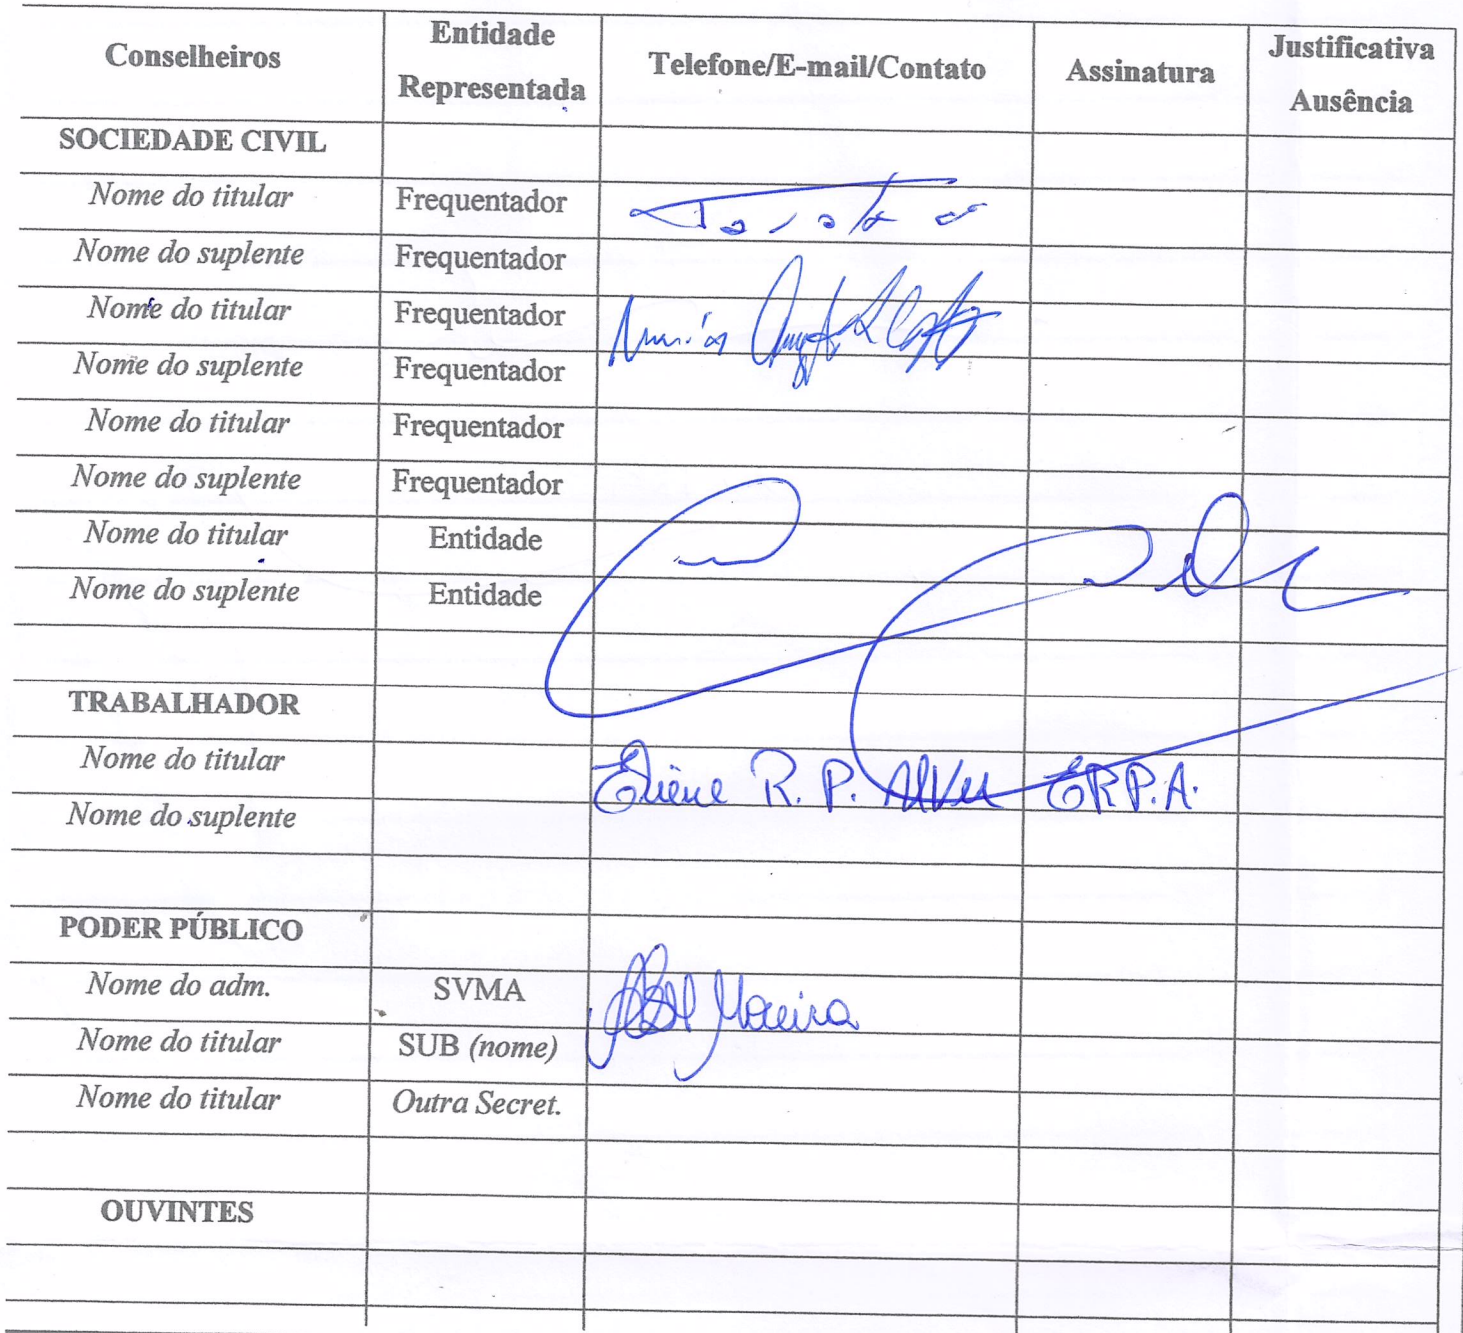 Conselheiros Entidade Representada Telefone/E-mail/Contato Assinatura Justificativa Ausência
SOCIEDADE CIVIL
Nome do titular Frequentador
Nome do suplente Frequentador
Nome do titular Frequentador
Nome do suplente Frequentador
Nome do titular Frequentador
Nome do suplente Frequentador
Nome do titular Entidade
Nome do suplente Entidade
TRABALHADOR
Nome do titular Eliene R. P. Alves E.R.P.A.
Nome do suplente
PODER PÚBLICO
Nome do adm. SVMA Moreira
Nome do titular SUB (nome)
Nome do titular Outra Secret.
OUVINTES